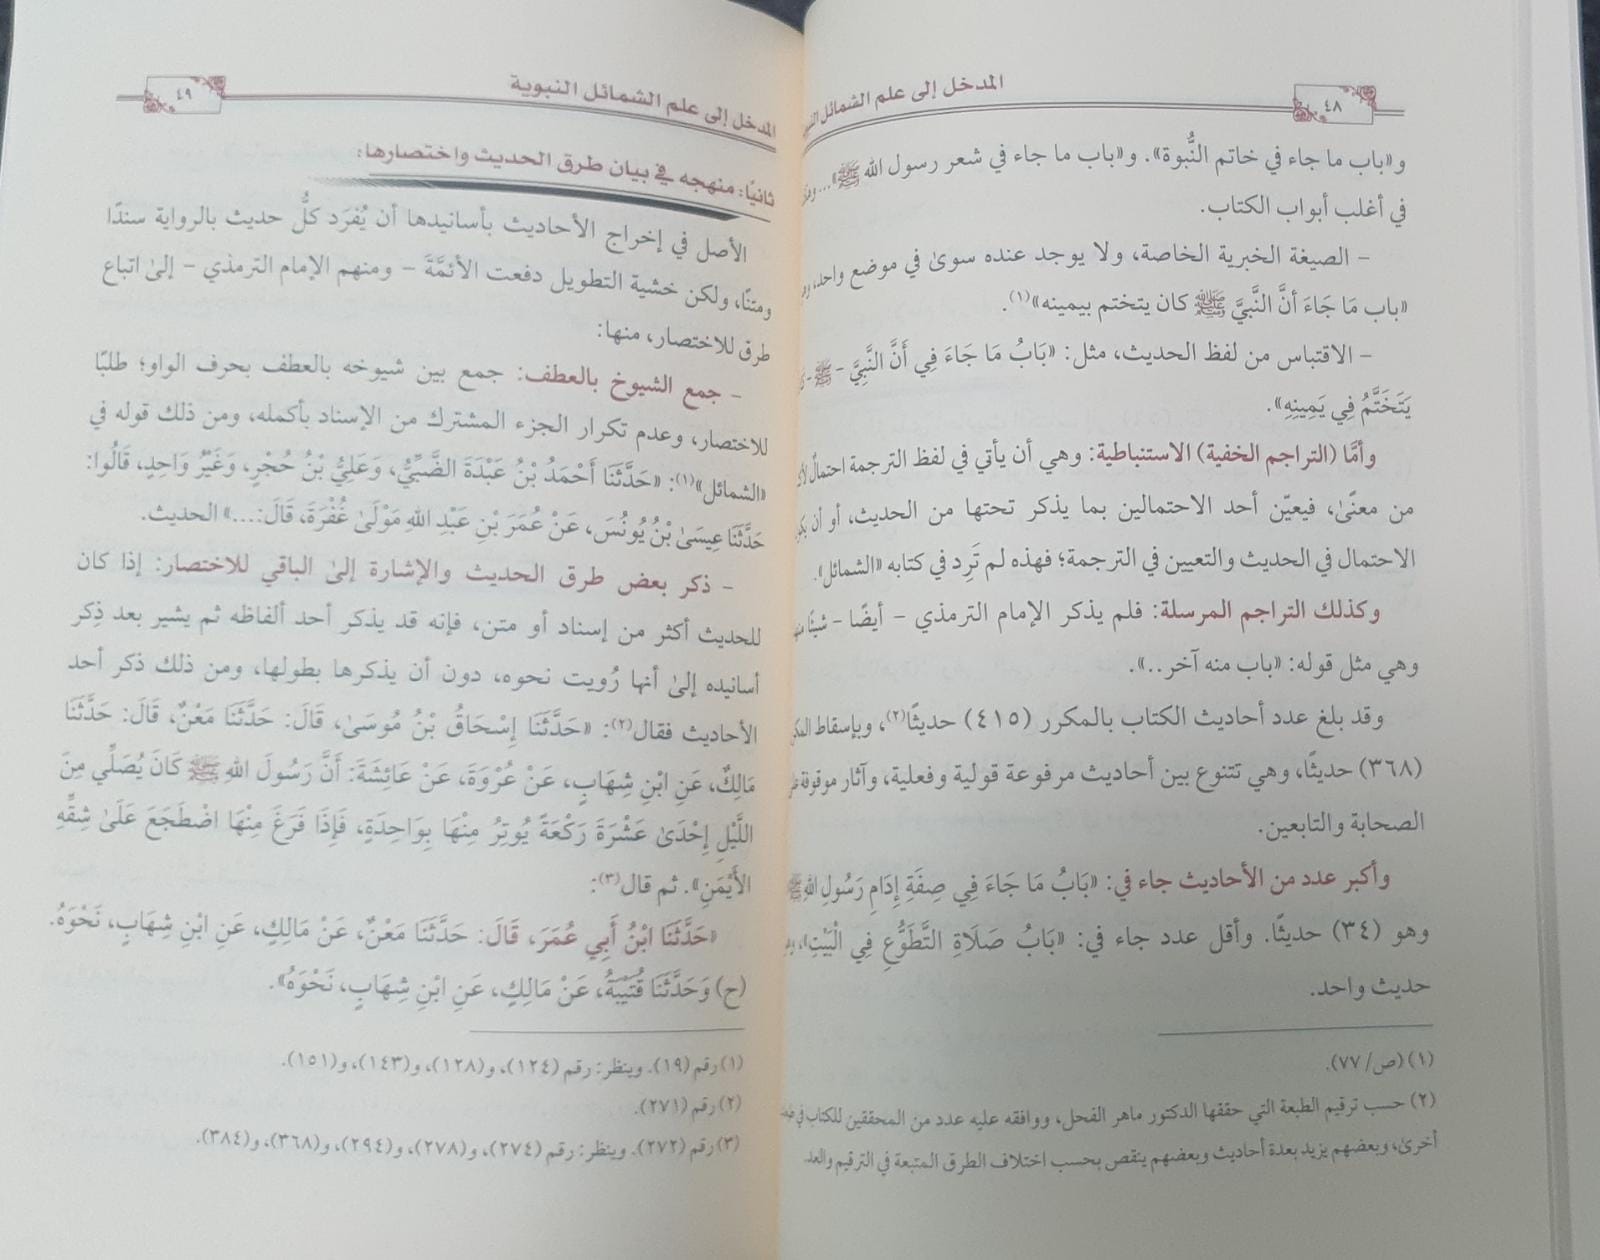 ٤٨
المدخل إلى علم الشمائل النبوية
و«باب ما جاء في خاتم النُّبوة». و«باب ما جاء في شعر رسول الله ﷺ»...
في أغلب أبواب الكتاب.
– الصيغة الخبرية الخاصة، ولا يوجد عنده سوىٰ في موضع واحد،
«باب مَا جَاءَ أنَّ النَّبيَّ ﷺ كان يتختم بيمينه»(١).
– الاقتباس من لفظ الحديث، مثل: «بَابُ مَا جَاءَ فِي أَنَّ النَّبِيَّ – ﷺ –
يَتَخَتَّمُ فِي يَمِينِهِ».
وأمَّا (التراجم الخفية) الاستنباطية: وهي أن يأتي في لفظ الترجمة احتمالٌ
من معنًىٰ، فيعيّن أحد الاحتمالين بما يذكر تحتها من الحديث، أو أن
الاحتمال في الحديث والتعيين في الترجمة؛ فهذه لم تَرِد في كتابه «الشمائل».
وكذلك التراجم المرسلة: فلم يذكر الإمام الترمذي – أيضًا – شيئًا
وهي مثل قوله: «باب منه آخر..».
وقد بلغ عدد أحاديث الكتاب بالمكرر (٤١٥) حديثًا(٢)، وبإسقاط
(٣٦٨) حديثًا، وهي تتنوع بين أحاديث مرفوعة قولية وفعلية، وآثار موقوفة
الصحابة والتابعين.
وأكبر عدد من الأحاديث جاء في: «بَابُ مَا جَاءَ فِي صِفَةِ إِدَامِ رَسُولِ اللهِ ﷺ
وهو (٣٤) حديثًا. وأقل عدد جاء في: «بَابُ صَلَاةِ التَّطَوُّعِ فِي الْبَيْتِ»،
حديث واحد.
(١) (ص/ ٧٧).
(٢) حسب ترقيم الطبعة التي حققها الدكتور ماهر الفحل، ووافقه عليه عدد من المحققين للكتاب في
أخرىٰ، وبعضهم يزيد بعدة أحاديث وبعضهم ينقص بحسب اختلاف الطرق المتبعة في الترقيم والعد.
٤٩
المدخل إلى علم الشمائل النبوية
ثانيًا: منهجه في بيان طرق الحديث واختصارها:
الأصل في إخراج الأحاديث بأسانيدها أن يُفرَد كلُّ حديث بالرواية سندًا
ومتنًا، ولكن خشية التطويل دفعت الأئمَّةَ – ومنهم الإمام الترمذي – إلىٰ اتباع
طرق للاختصار، منها:
– جمع الشيوخ بالعطف: جمع بين شيوخه بالعطف بحرف الواو؛ طلبًا
للاختصار، وعدم تكرار الجزء المشترك من الإسناد بأكمله، ومن ذلك قوله في
«الشمائل»(١): «حَدَّثَنَا أَحْمَدُ بْنُ عَبْدَةَ الضَّبِّيُّ، وَعَلِيُّ بْنُ حُجْرٍ، وَغَيْرُ وَاحِدٍ، قَالُوا:
حَدَّثَنَا عِيسَىٰ بْنُ يُونُسَ، عَنْ عُمَرَ بْنِ عَبْدِ اللهِ مَوْلَىٰ غُفْرَةَ، قَالَ:...» الحديث.
– ذكر بعض طرق الحديث والإشارة إلىٰ الباقي للاختصار: إذا كان
للحديث أكثر من إسناد أو متن، فإنه قد يذكر أحد ألفاظه ثم يشير بعد ذِكر
أسانيده إلىٰ أنها رُويت نحوه، دون أن يذكرها بطولها، ومن ذلك ذكر أحد
الأحاديث فقال(٢): «حَدَّثَنَا إِسْحَاقُ بْنُ مُوسَىٰ، قَالَ: حَدَّثَنَا مَعْنٌ، قَالَ: حَدَّثَنَا
مَالِكٌ، عَنِ ابْنِ شِهَابٍ، عَنْ عُرْوَةَ، عَنْ عَائِشَةَ: أَنَّ رَسُولَ اللهِ ﷺ كَانَ يُصَلِّي مِنَ
اللَّيْلِ إِحْدَىٰ عَشْرَةَ رَكْعَةً يُوتِرُ مِنْهَا بِوَاحِدَةٍ، فَإِذَا فَرَغَ مِنْهَا اضْطَجَعَ عَلَىٰ شِقِّهِ
الأَيْمَنِ». ثم قال(٣):
«حَدَّثَنَا ابْنُ أَبِي عُمَرَ، قَالَ: حَدَّثَنَا مَعْنٌ، عَنْ مَالِكٍ، عَنِ ابْنِ شِهَابٍ، نَحْوَهُ.
(ح) وَحَدَّثَنَا قُتَيْبَةُ، عَنْ مَالِكٍ، عَنِ ابْنِ شِهَابٍ، نَحْوَهُ».
(١) رقم (١٩). وينظر: رقم (١٢٤)، و(١٢٨)، و(١٤٣)، و(١٥١).
(٢) رقم (٢٧١).
(٣) رقم (٢٧٢). وينظر: رقم (٢٧٤)، و(٢٧٨)، و(٢٩٤)، و(٣٦٨)، و(٣٨٤).